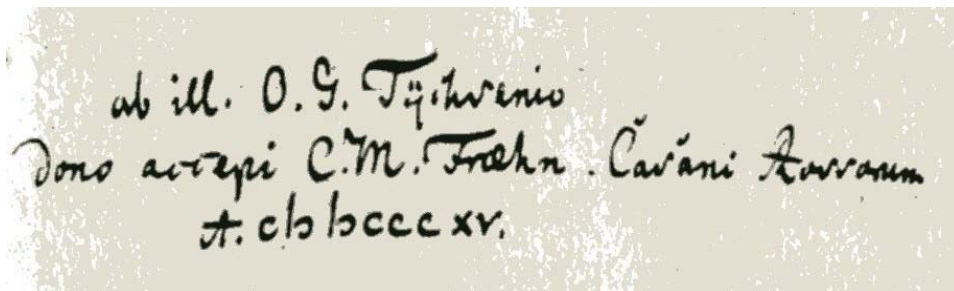 ab ill. O. G. Tÿchsenio
dono accepi C. M. Fræhn. Căsăni Rossorum
A. cIɔ Iɔcccxv.